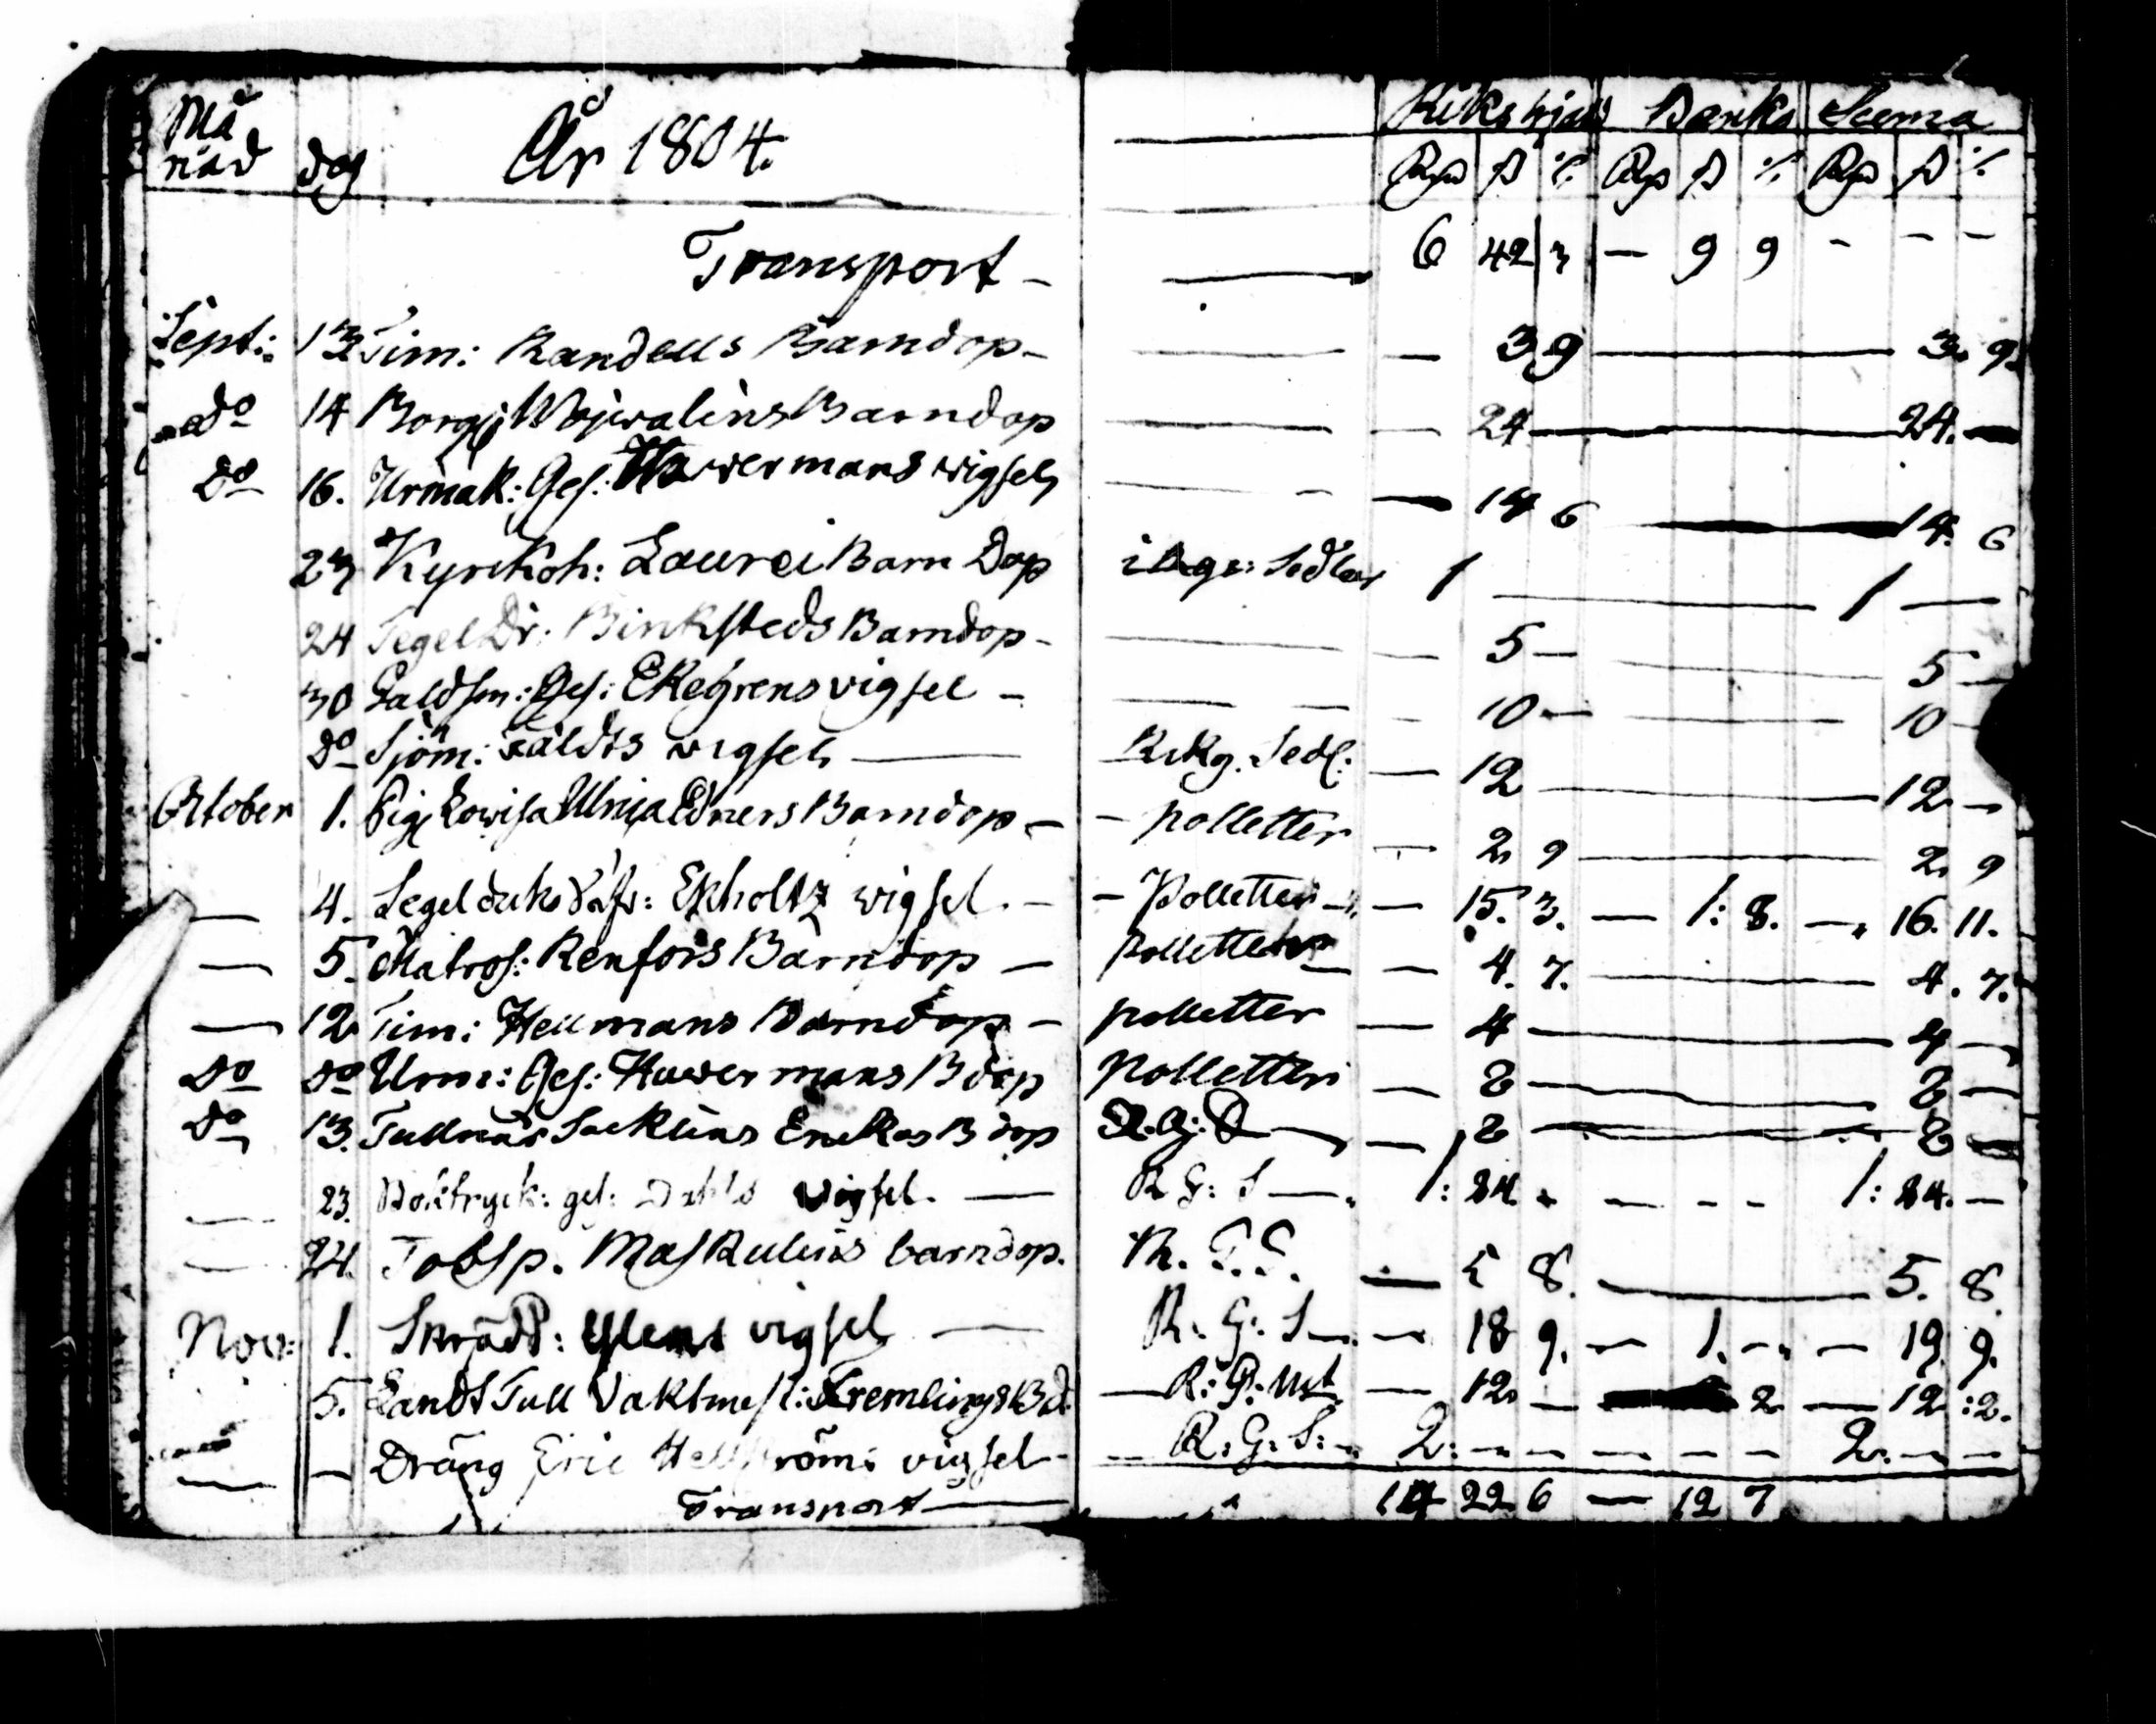 Må
nad dag År 1804. Riksgjäld Banko Summa
Rp ß ℔ Rp ß ℔ Rp ß ℔
Transport - 6 42 3 — 9 9 - - -
Sept: 13 Tim: Randells Barndop - — 3 9 — 3. 9.
do 14 Borgj Barndop — 24 — 24. —
do 16. Urmak: Ges: Hawermans wigsel — 14 6 — 14. 6
23 Kyrkoh: Laurei Barn Dop Sedlar 1 — 1 —
24 Tegel Dr: Binksteds Barndop - — 5 — 5 —
30 Guldsm: Ges: Ekegrens vigsel - — 10 — 10 -
do Sjöm: wigsel — Rikg. Sedl: — 12 — 12 —
October 1. Pig. Lowisa Ulrica Edners Barndop — - polletter — 2 9 — 2. 9
— 4. Segelduks Ekholtz wigsel. - - Polletter — 15. 3. — 1: 8. — 16. 11.
— 5. Matros: Renfors Barndop — polletter — — 4. 7. — 4. 7.
— 12 Tim: Hellmans Barndop - polletter — 4 — 4 —
do do Urm: Ges: Hawermans Bdop Polletter — 8 — 8 —
do 13. Tullnär Enkas Bdop R. G: S — 8 — 8 —
— 23. Boktryck: ges: Dahls vigsel. — R G: S —. 1: 24. - - - 1: 24. —
— 24. Maskulins barndop. R. G. S. — 5 8. — 5. 8.
Nov: 1. Skrädd: vigsel — R. G: S —. — 18 9. — 1. - — 19 9.
5. Landt Tull Vaktmest: Fremlings Bd. — R: G: Mt — 12 — 2 — 12 :2.
— — Dräng Eric Hellströms vigsel - — R: G: S: - 2: - - - - - 2. - -
Transport — 14 22 6 — 12 7